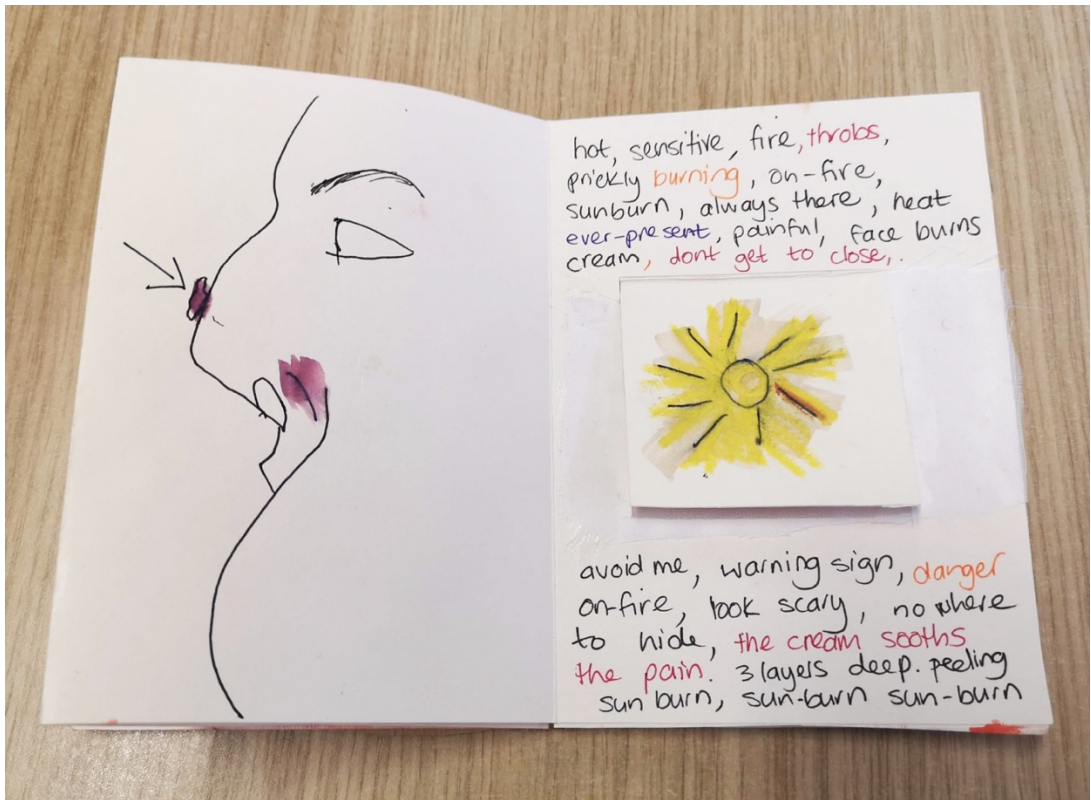 hot, sensitive, fire, throbs,
prickly burning, on-fire,
sunburn, always there, heat
ever-present, painful, face burns
cream, dont get to close,.
avoid me, warning sign, danger
on-fire, look scary, no where
to hide, the cream sooths
the pain. 3 layers deep. peeling
sun burn, sun-burn sun-burn